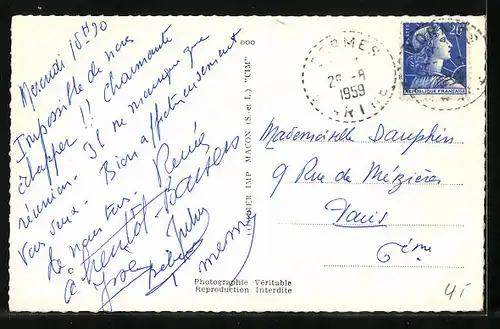 Mercredi 18H20
Impossible de nous
échapper !! Charmante
réunion - Il ne manque que
vous deux - Bien affectueusement
de nous tous - Renée
à bientôt - baisers
ooo
COMBIER IMP MACON (S.-et-L.) "CIM"
Photographie Véritable
Reproduction Interdite
1959
20F
REPUBLIQUE FRANÇAISE
Mademoiselle Dauphin
9 Rue de Mézières
Paris
6ème